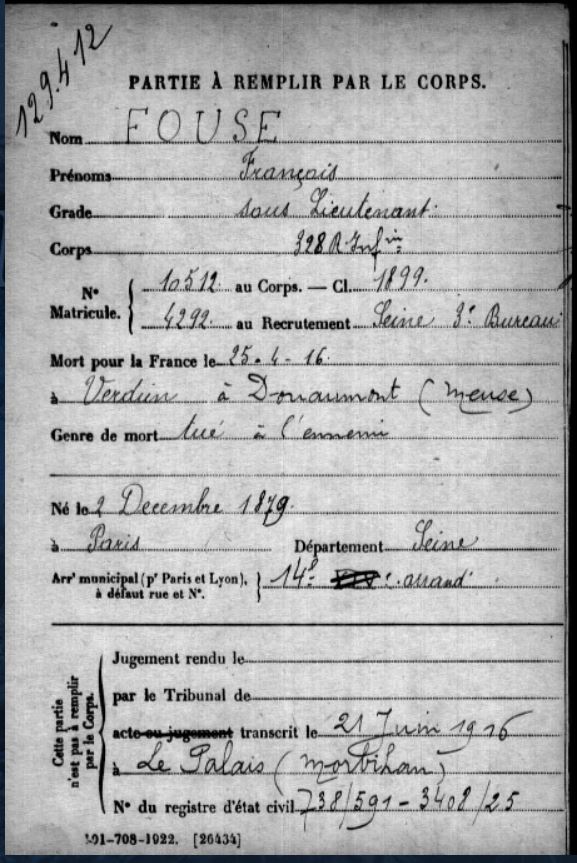 129.412
PARTIE À REMPLIR PAR LE CORPS.
Nom FOUSE
Prénoms François
Grade sous Lieutenant
Corps 328 R. Inf ie
N° Matricule. 10512 au Corps. — Cl. 1899.
4292 au Recrutement Seine 3e Bureau
Mort pour la France le 25-4-16
à Verdun à Douaumont (Meuse)
Genre de mort tué à l'ennemi
Né le 2 Decembre 1879.
à Paris Département Seine
Arrt municipal (pr Paris et Lyon), 14e arrondt
à défaut rue et N°.
Cette partie n'est pas à remplir par le Corps.
Jugement rendu le
par le Tribunal de
acte ou jugement transcrit le 21 Juin 1916
à Le Palais (Morbihan)
N° du registre d'état civil 738/591 - 3408/25
101-708-1922. [26434]